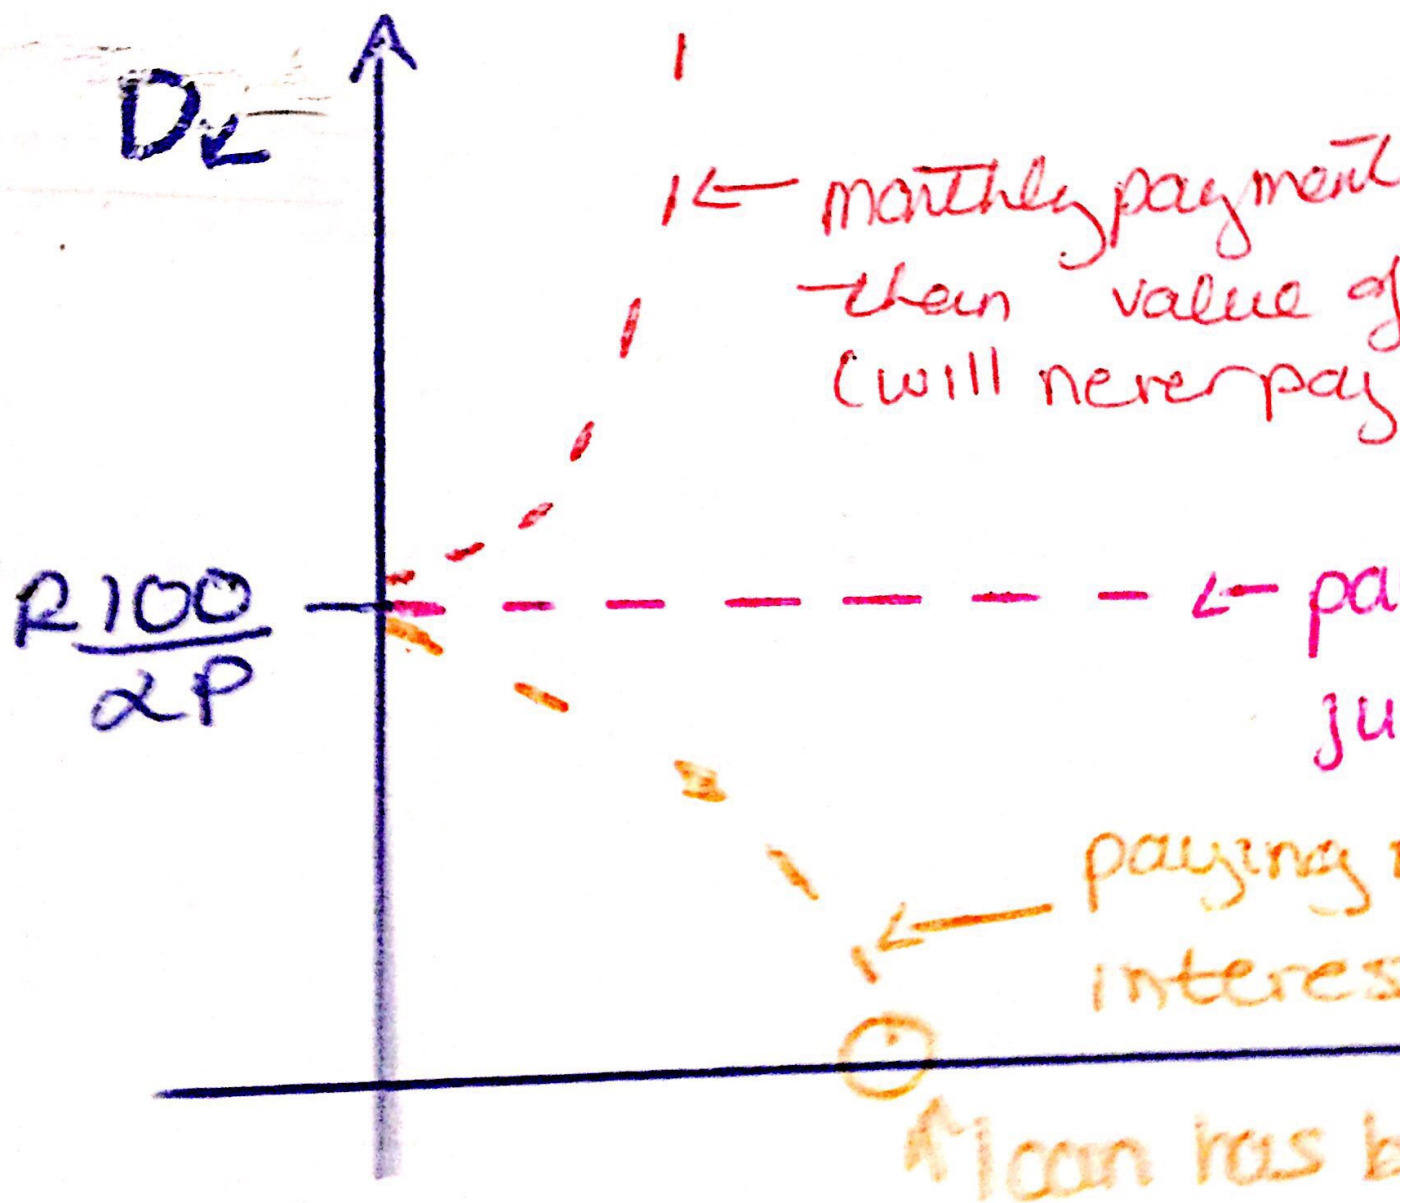 D
← monthly payment
than value of
(will never pay
R100
αP
← pa
ju
paying
interes
↑ loan has b